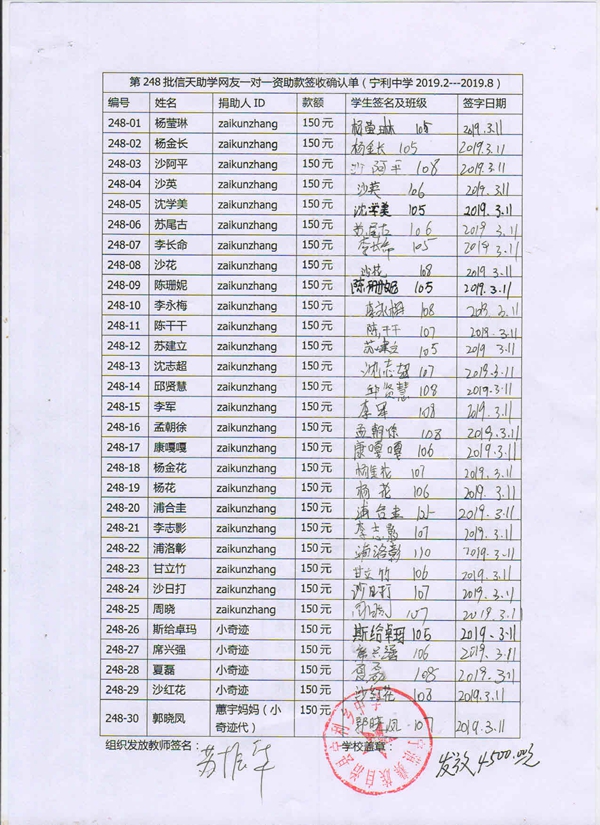 第248批信天助学网友一对一资助款签收确认单（宁利中学2019.2---2019.8）
编号 姓名 捐助人ID 款额 学生签名及班级 签字日期
248-01 杨莹琳 zaikunzhang 150元 杨莹琳 105 2019.3.11
248-02 杨金长 zaikunzhang 150元 杨金长 105 2019.3.11
248-03 沙阿平 zaikunzhang 150元 沙阿平 108 2019.3.11
248-04 沙英 zaikunzhang 150元 沙英 106 2019.3.11
248-05 沈学美 zaikunzhang 150元 沈学美 105 2019.3.11
248-06 苏尾古 zaikunzhang 150元 苏尾古 106 2019.3.11
248-07 李长命 zaikunzhang 150元 李长命 105 2019.3.11
248-08 沙花 zaikunzhang 150元 沙花 108 2019.3.11
248-09 陈珊妮 zaikunzhang 150元 陈珊妮 105 2019.3.11
248-10 李永梅 zaikunzhang 150元 李永梅 108 2019.3.11
248-11 陈干干 zaikunzhang 150元 陈干干 107 2019.3.11
248-12 苏建立 zaikunzhang 150元 苏建立 105 2019 3.11
248-13 沈志超 zaikunzhang 150元 沈志超 107 2019.3.11
248-14 邱贤慧 zaikunzhang 150元 邱贤慧 108 2019.3.11
248-15 李军 zaikunzhang 150元 李军 108 2019.3.11
248-16 孟朝徐 zaikunzhang 150元 孟朝徐 108 2019.3.11
248-17 康嘎嘎 zaikunzhang 150元 康嘎嘎 106 2019.3.11
248-18 杨金花 zaikunzhang 150元 杨金花 107 2019.3.11
248-19 杨花 zaikunzhang 150元 杨花 106 2019.3.11
248-20 浦合圭 zaikunzhang 150元 浦合圭 2019.3.11
248-21 李志影 zaikunzhang 150元 李志影 107 2019.3.11
248-22 浦洛彰 zaikunzhang 150元 浦洛彰 110 2019.3.11
248-23 甘立竹 zaikunzhang 150元 甘立竹 106 2019.3.11
248-24 沙日打 zaikunzhang 150元 沙日打 107 2019.3.11
248-25 周晓 zaikunzhang 150元 周晓 107 2019.3.11
248-26 斯给卓玛 小奇迹 150元 斯给卓玛 105 2019.3.11
248-27 席兴强 小奇迹 150元 席兴强 106 2019.3.11
248-28 夏磊 小奇迹 150元 夏磊 108 2019.3.11
248-29 沙红花 小奇迹 150元 沙红花 108 2019.3.11
248-30 郭晓凤 蕙宇妈妈（小奇迹代） 150元 郭晓凤 107 2019.3.11
组织发放教师签名： 学校盖章：
发放4500.00元